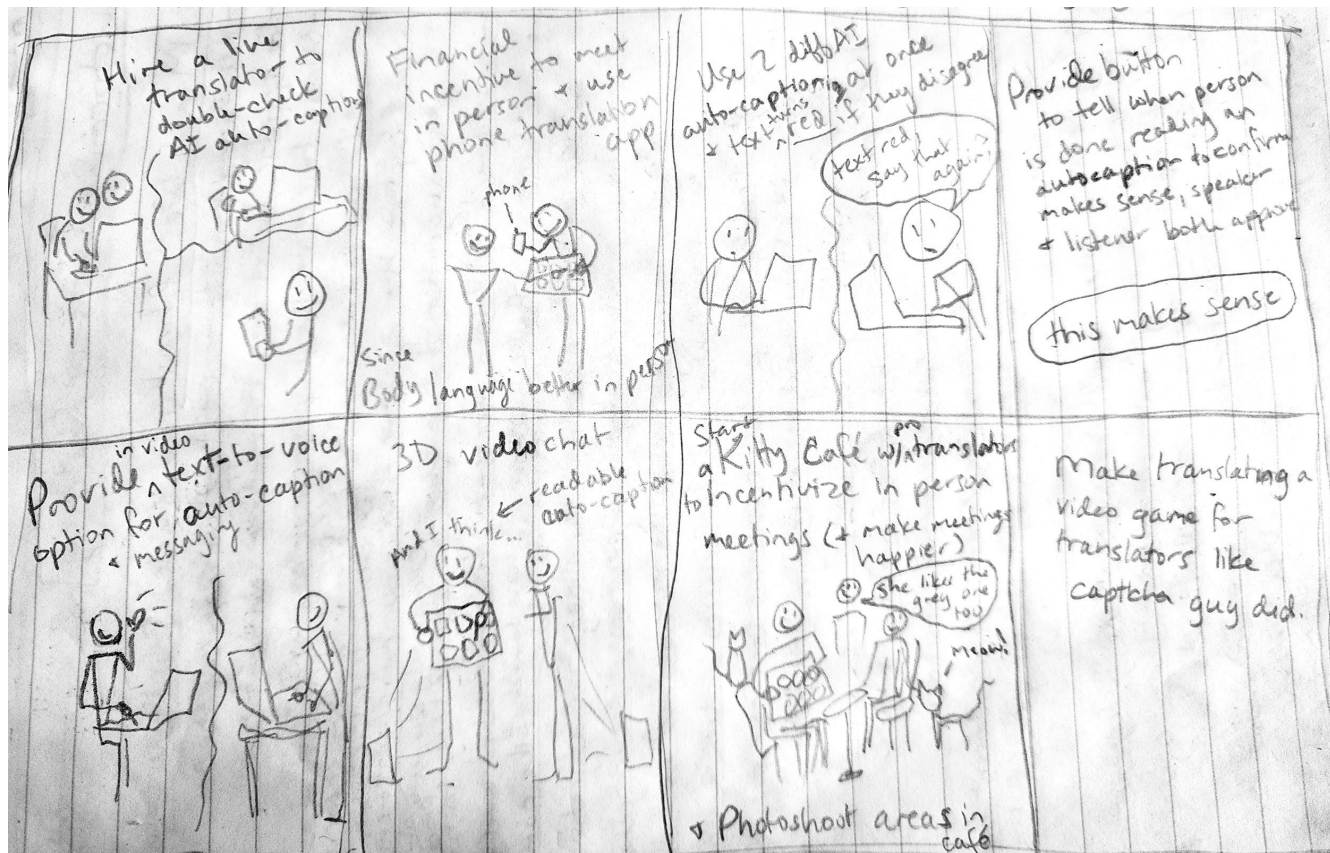 Hire a live
translator to
double-check
AI auto-captions
Financial
incentive to meet
in person + use
phone translation
app
phone
Since
Body language better in person
Use 2 diff AI
auto-captioning at once
+ text turns red if they disagree
text red,
say that
again?
Provide button
to tell when person
is done reading an
autocaption to confirm
makes sense, speaker
+ listener both approve
this makes sense
in video
Provide ^ text-to-voice
option for auto-caption
+ messaging
3D video chat
readable
auto-caption
and I think...
Start
a Kitty Café w/ pro translators
to Incentivize in person
meetings (+ make meetings
happier)
She likes the
grey one
too
Meow!
+ Photoshoot areas in
café
Make translating a
video game for
translators like
captcha guy did.